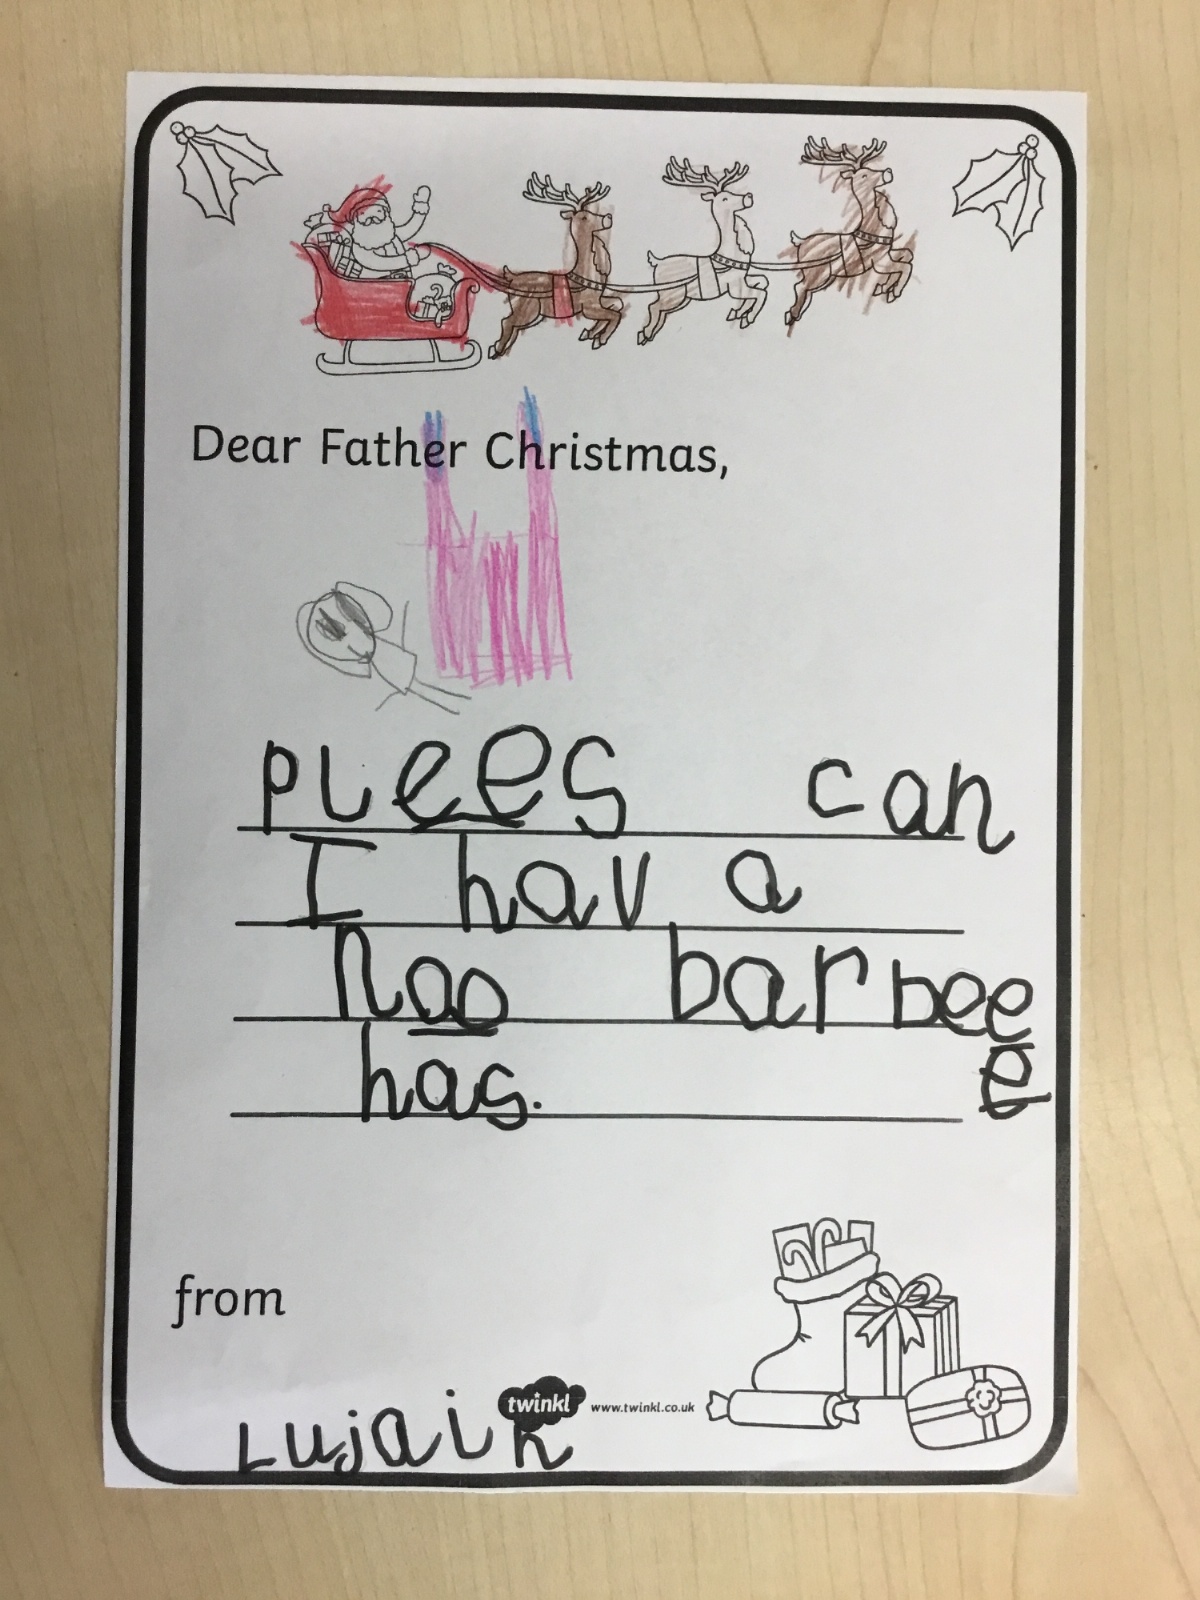 Dear Father Christmas,
pLees can
I hav a
nao barbee
has.
from
Lujain
twinkl www.twinkl.co.uk